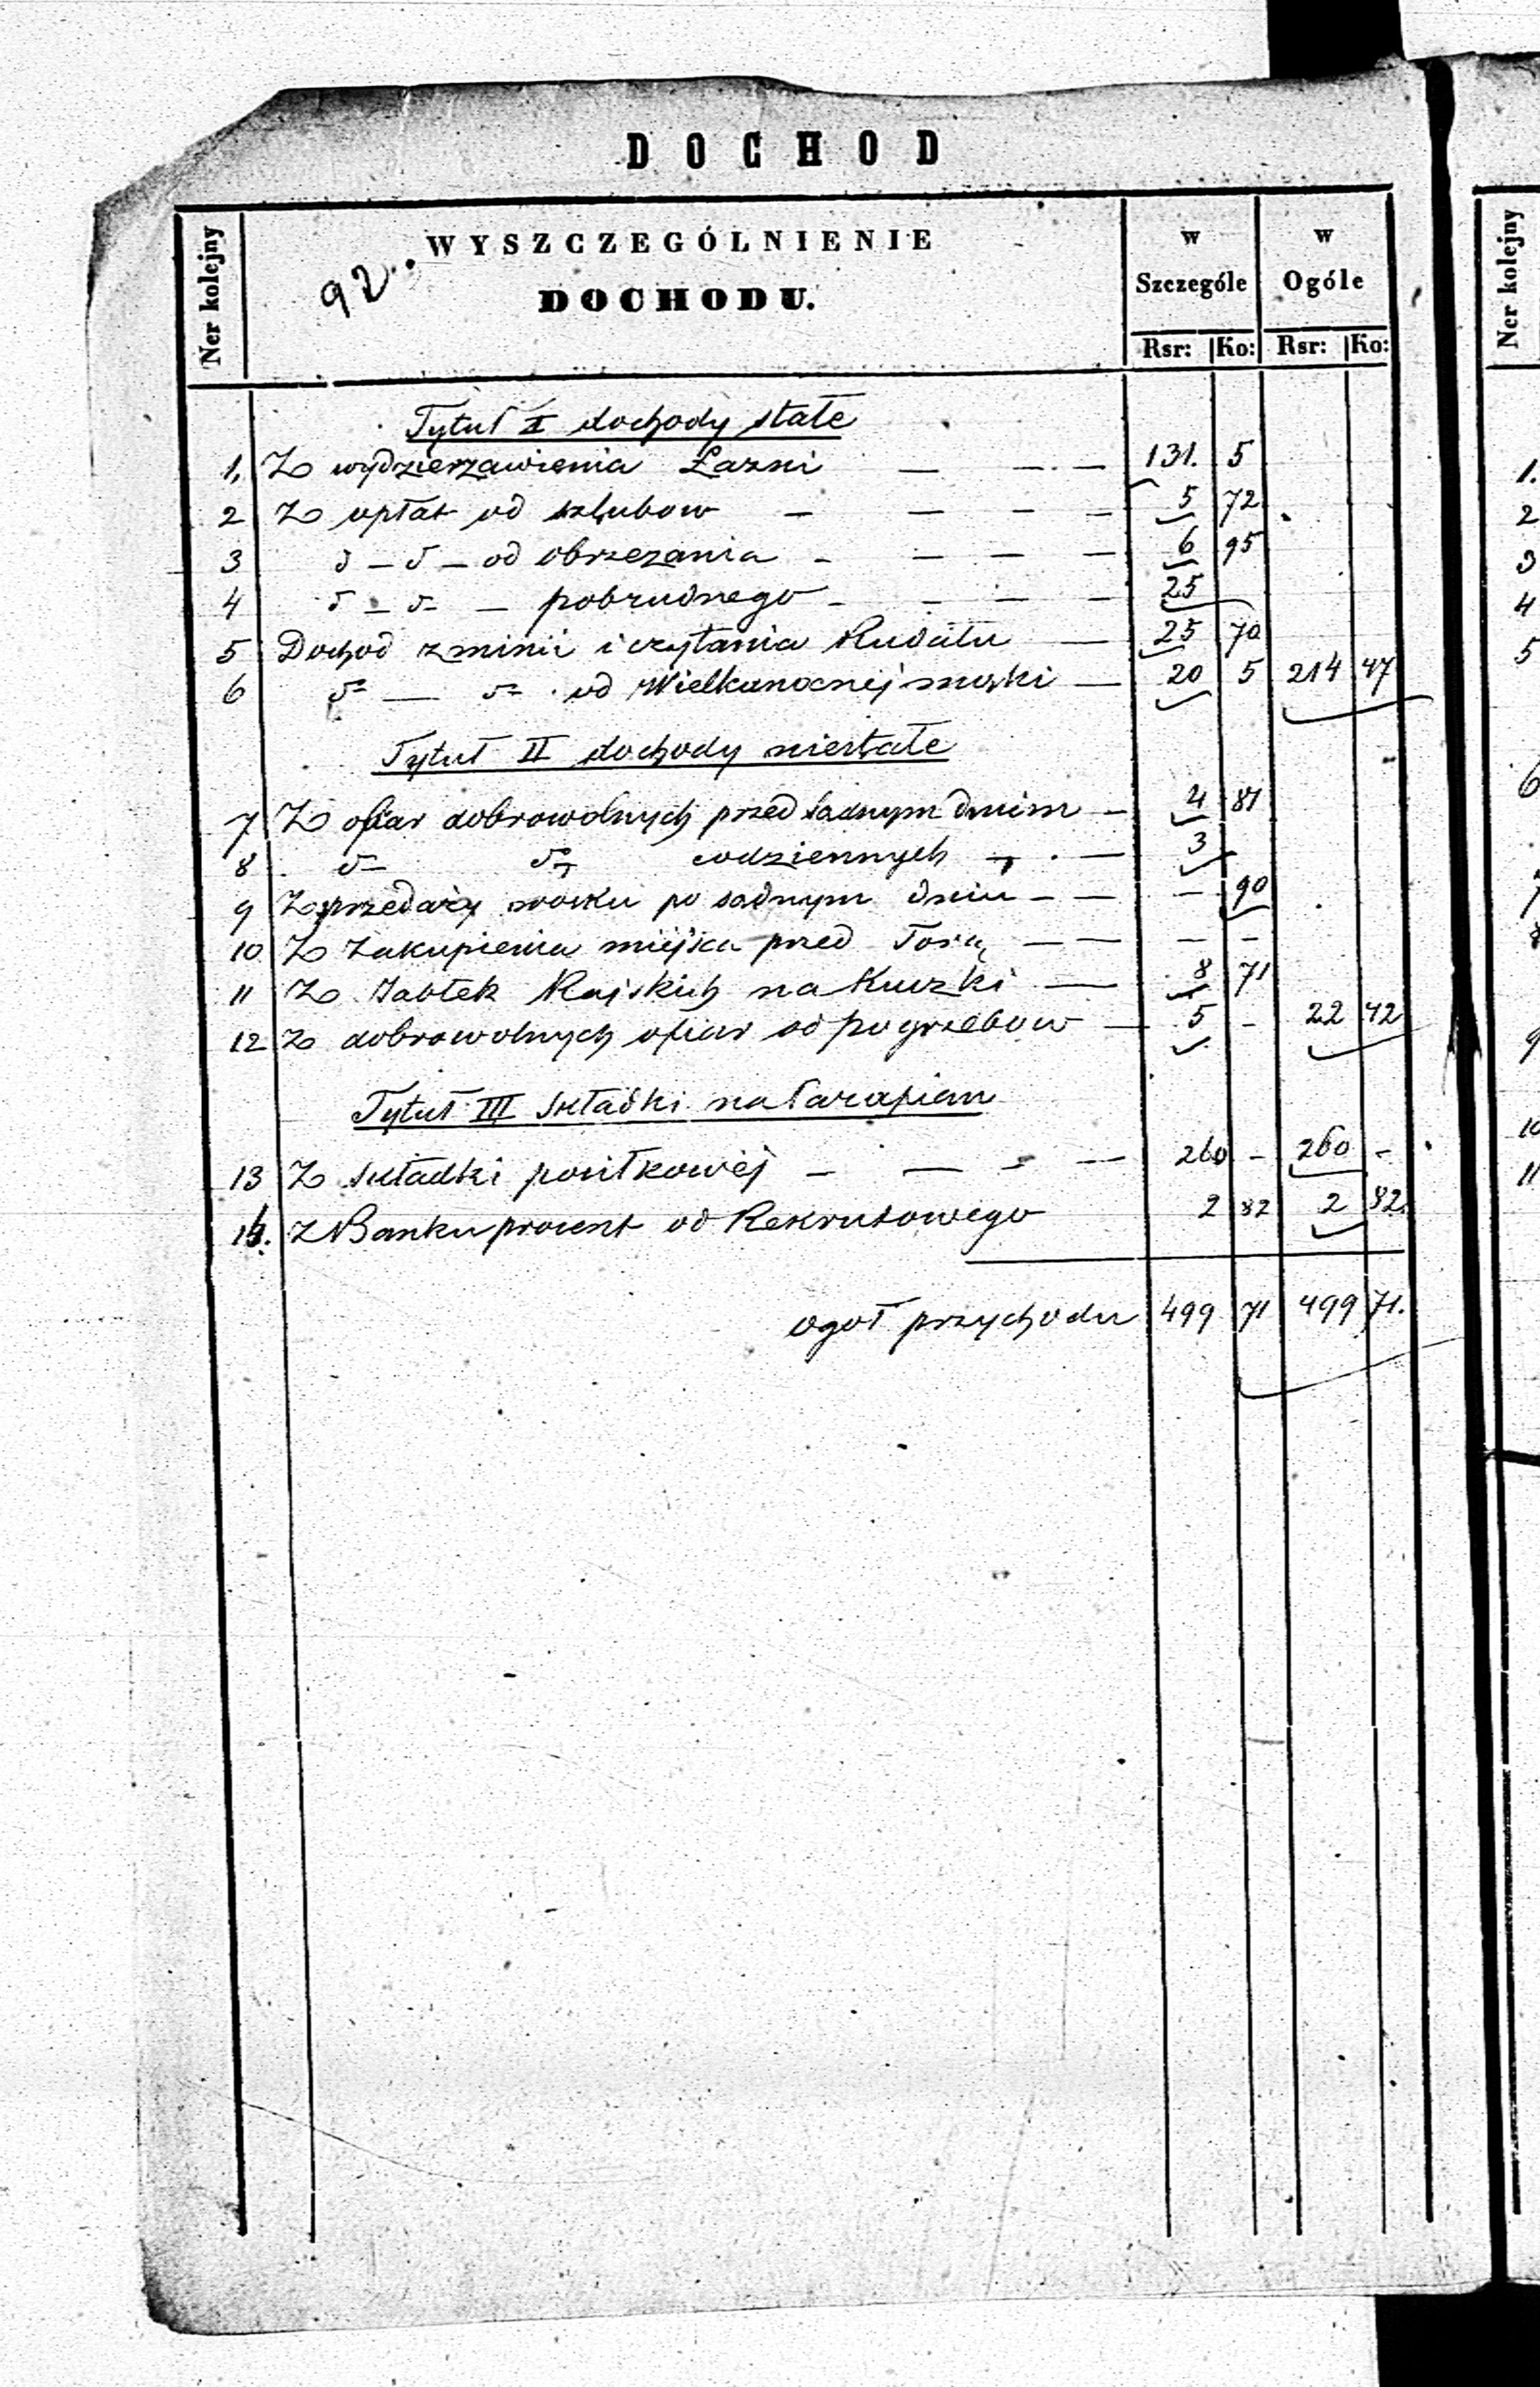 DOCHOD
Ner kolejny
WYSZCZEGÓLNIENIE
DOCHODU.
92.
w Szczególe
w Ogóle
Rsr: Ko: Rsr: Ko:
Tytuł I dochody stałe
1, Z wydzierzawienia Łazni — — — 131. 5
2 Z opłat od szlubow — — — — 5 72
3 d — d — od obrzezania — — — — 6 95
4 d — d — pobrudnego — — — — 25
5 Dochod z minii i czytania Rudału — 25 70
6 d — d od Wielkanocnej mąki — 20 5 214 47
Tytuł II dochody niestałe
7 Z ofiar dobrowolnych przed sadnym dniem — 4 81
8 d d codziennych — — 3
9 Z przedaży wosku po sadnym dniu — — — 90
10 Z zakupienia miejsca przed Torą — — — —
11 Z Jabłek Rajskich na Kuczki — 8 71
12 Z dobrowolnych ofiar od pogrzebow — 5 — 22 42
Tytuł III składki na Parafian
13 Z składki posiłkowéj — — — — 260 — 260 —
14. Z Banku procent od Rekrutowego 2 82 2 82.
ogoł przychodu 499 71 499 71.
Ner kolejny
1.
2
3
4
5
6